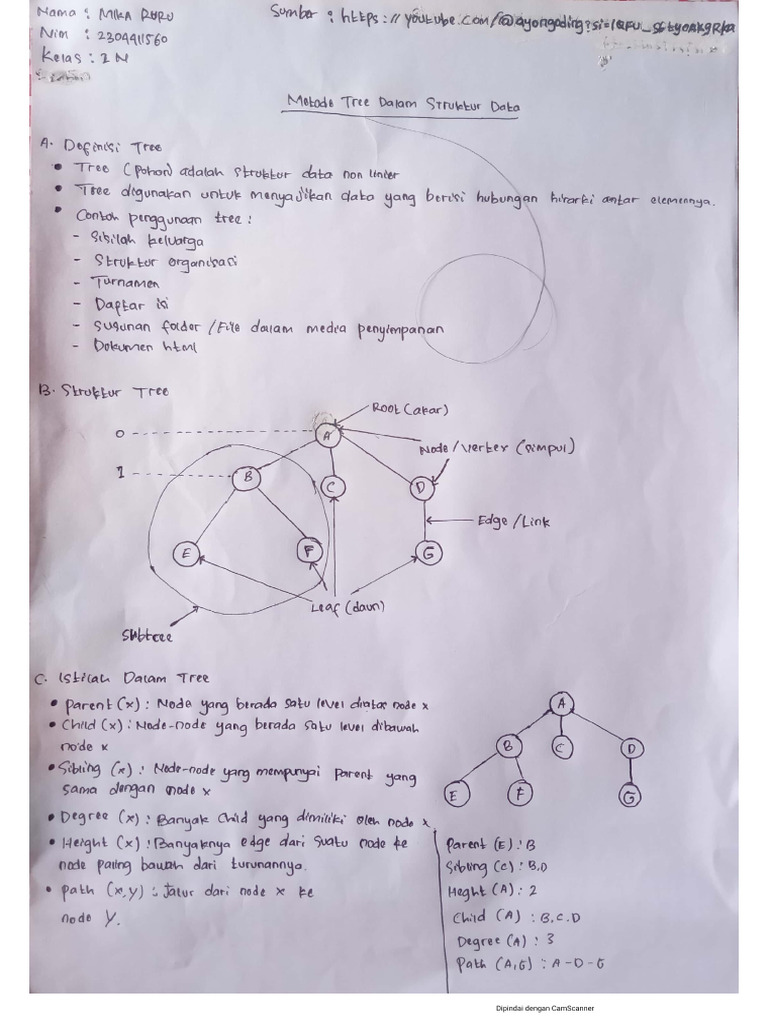 Nama : MIKA RURU
Sumber : https://youtube.com/@ayongoding?si=
Nim : 2304411560
Kelas : 2 N
Metode Tree Dalam Struktur Data
A. Definisi Tree
• Tree (Pohon) adalah struktur data non linier
• Tree digunakan untuk menyajikan data yang berisi hubungan hirarki antar elemennya.
• Contoh penggunaan tree :
- Silsilah keluarga
- Struktur organisasi
- Turnamen
- Daptar isi
- Susunan folder /File dalam media penyimpanan
- Dokumen html
B. Struktur Tree
Root (akar)
0
A
Node / Verter (simpul)
1
B
C
D
Edge / Link
E
F
G
Leaf (daun)
Subtree
C. Istilah Dalam Tree
• Parent (x) : Node yang berada satu level diatas node x
• Child (x) : Node-node yang berada satu level dibawah
node x
• Sibling (x) : Node-node yang mempunyai parent yang
sama dengan node x
• Degree (x) : Banyak child yang dimiliki oleh node x
• Height (x) : Banyaknya edge dari suatu node ke
node paling bawah dari turunannya.
• Path (x,y) : Jalur dari node x ke
node y.
A
B
C
D
E
F
G
Parent (E) : B
Sibling (C) : B,D
Heght (A) : 2
Child (A) : B,C,D
Degree (A) : 3
Path (A,G) : A-D-G
Dipindai dengan CamScanner